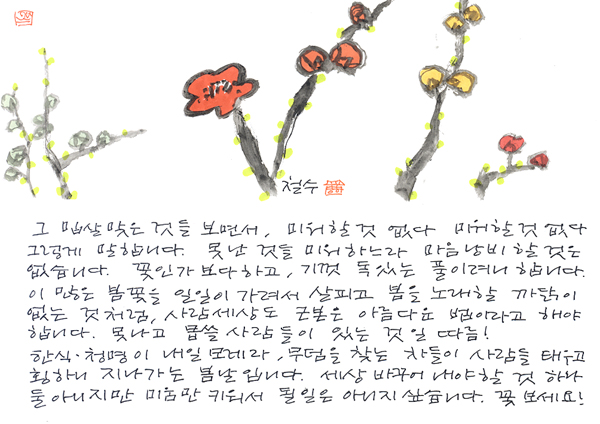 철수
그 밉살맞은 것들 보면서, 미워할 것 없다 미워할 것 없다
그렇게 말합니다. 못난 것들 미워하느라 마음 낭비 할 것은
없습니다. 꽃인가 보다 하고, 기껏 독 있는 풀이려니 합니다.
이 많은 봄꽃을 일일이 가려서 살피고 봄을 노래할 까닭이
없는 것처럼, 사람세상도 근본은 아름다운 법이라고 해야
합니다. 못나고 몹쓸 사람들이 있는 것일 따름!
한식·청명이 내일 모레라, 무덤을 찾는 차들이 사람을 태우고
휭하니 지나가는 봄날입니다. 세상 바꾸어 내야할 것 하나
둘 아니지만 미움만 키워서 될일은 아니지 싶습니다. 꽃 보세요!